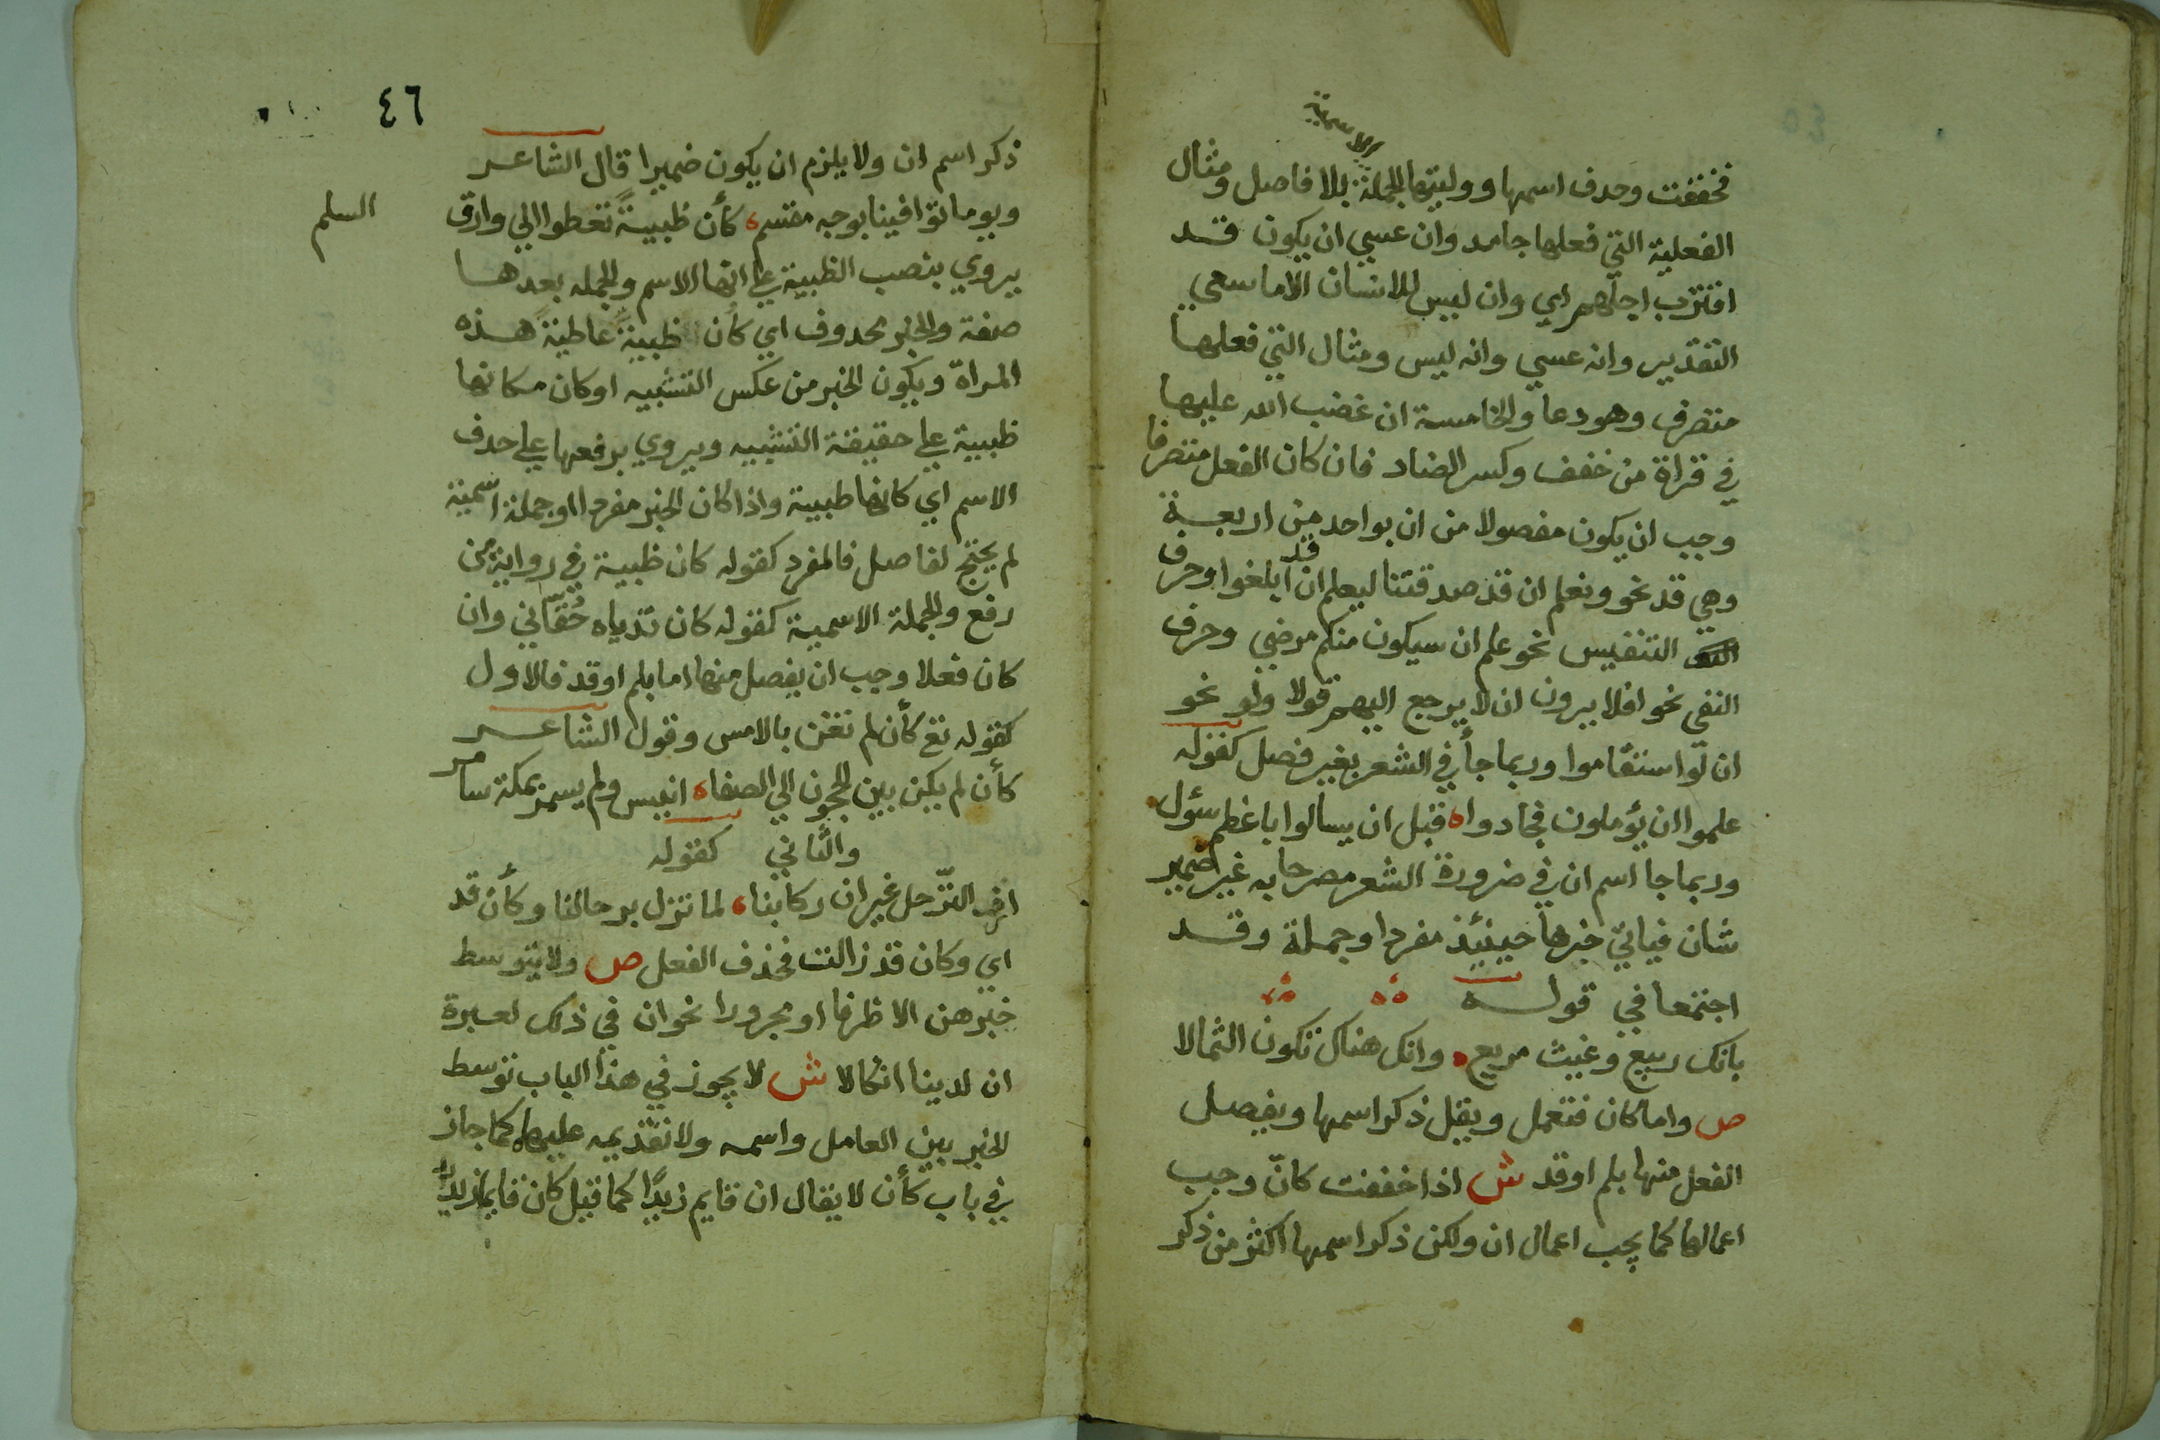 الاسمية
فخففت وحدف اسمها ووليتها الجملة بلا فاصل ومثال
الفعلية التي فعلها جامد وان عسي ان يكون قد
اقترب اجلهم اي وان ليس للانسان الا ما سعي
التقدير وانه عسي وانه ليس ومثال التي فعلها
متصرف وهو دعا والخامسة ان غضب الله عليها
في قراة من خفف وكسر الضاد فان كان الفعل متصرفا
وجب ان يكون مفصولا من ان بواحد من اربعة
وهي قد نحو ونعلم ان قد صدقتنا ليعلم ان قد ابلغوا وحرف
التنفيس نحو علم ان سيكون منكم مرضي وحرف
النفي نحو افلا يرون ان لا يرجع اليهم قولا ولو نحو
ان لو استقاموا وربما جأ في الشعر بغير فصل كقوله
علموا ان يؤملون فجادوا ه قبل ان يسالوا باعظم سئول
وربما جا اسم ان في ضرورة الشعر مصرحا به غير ضمير
شان فياتي خبرها حينئذ مفردا وجملة وقد
اجتمعا في قوله
بانك ربيع وغيث مريع وانك هناك تكون الثمالا
ص واما كان فتعمل ويقل ذكر اسمها ويفصل
الفعل منها بلم او قد ش اذا خففت كانّ وجب
اعمالها كما يجب اعمال ان ولكن ذكر اسمها اكثر من ذكر
٤٦
ذكر اسم ان ولا يلزم ان يكون ضميرا قال الشاعر
ويوما توافينا بوجه مقسم كأن ظبيةً تعطوا الي وارق
السلم
يروي بنصب الظبية علي انها الاسم والجمله بعدها
صفة والخبر محدوف اي كأن ظبيةً عاطيةً هذه
المراة ويكون الخبر من عكس التشبيه او كان مكانها
ظبية علي حقيقة التشبيه ويروي برفعها علي حدف
الاسم اي كانها ظبية واذا كان الخبر مفردا او جملة اسمية
لم يحتج لفاصل فالمفرد كقوله كان ظبية في رواية من
رفع والجملة الاسمية كقوله كان ثدياه حُقّاني وان
كان فعلا وجب ان يفصل منها اما بلم او قد فالاول
كقوله تع كأن لم تغن بالامس وقول الشاعر
كأن لم يكن بين الحجون الي الصفاه انيس ولم يسمر بمكة سامر
والثاني كقوله
افد الترّحل غير ان ركابنا لما تزل برحالنا وكأن قد
اي وكان قد زالت فحذف الفعل ص ولا يتوسط
خبرهن الا ظرفا او مجرورا نحو ان في ذلك لعبرة
ان لدينا انكالا ش لا يجوز في هذا الباب توسط
الخبر بين العامل واسمه ولا تقديمه عليهما كما جاز
في باب كأن لا يقال ان قايم زيدًا كما قيل كان قايما زيدٌ